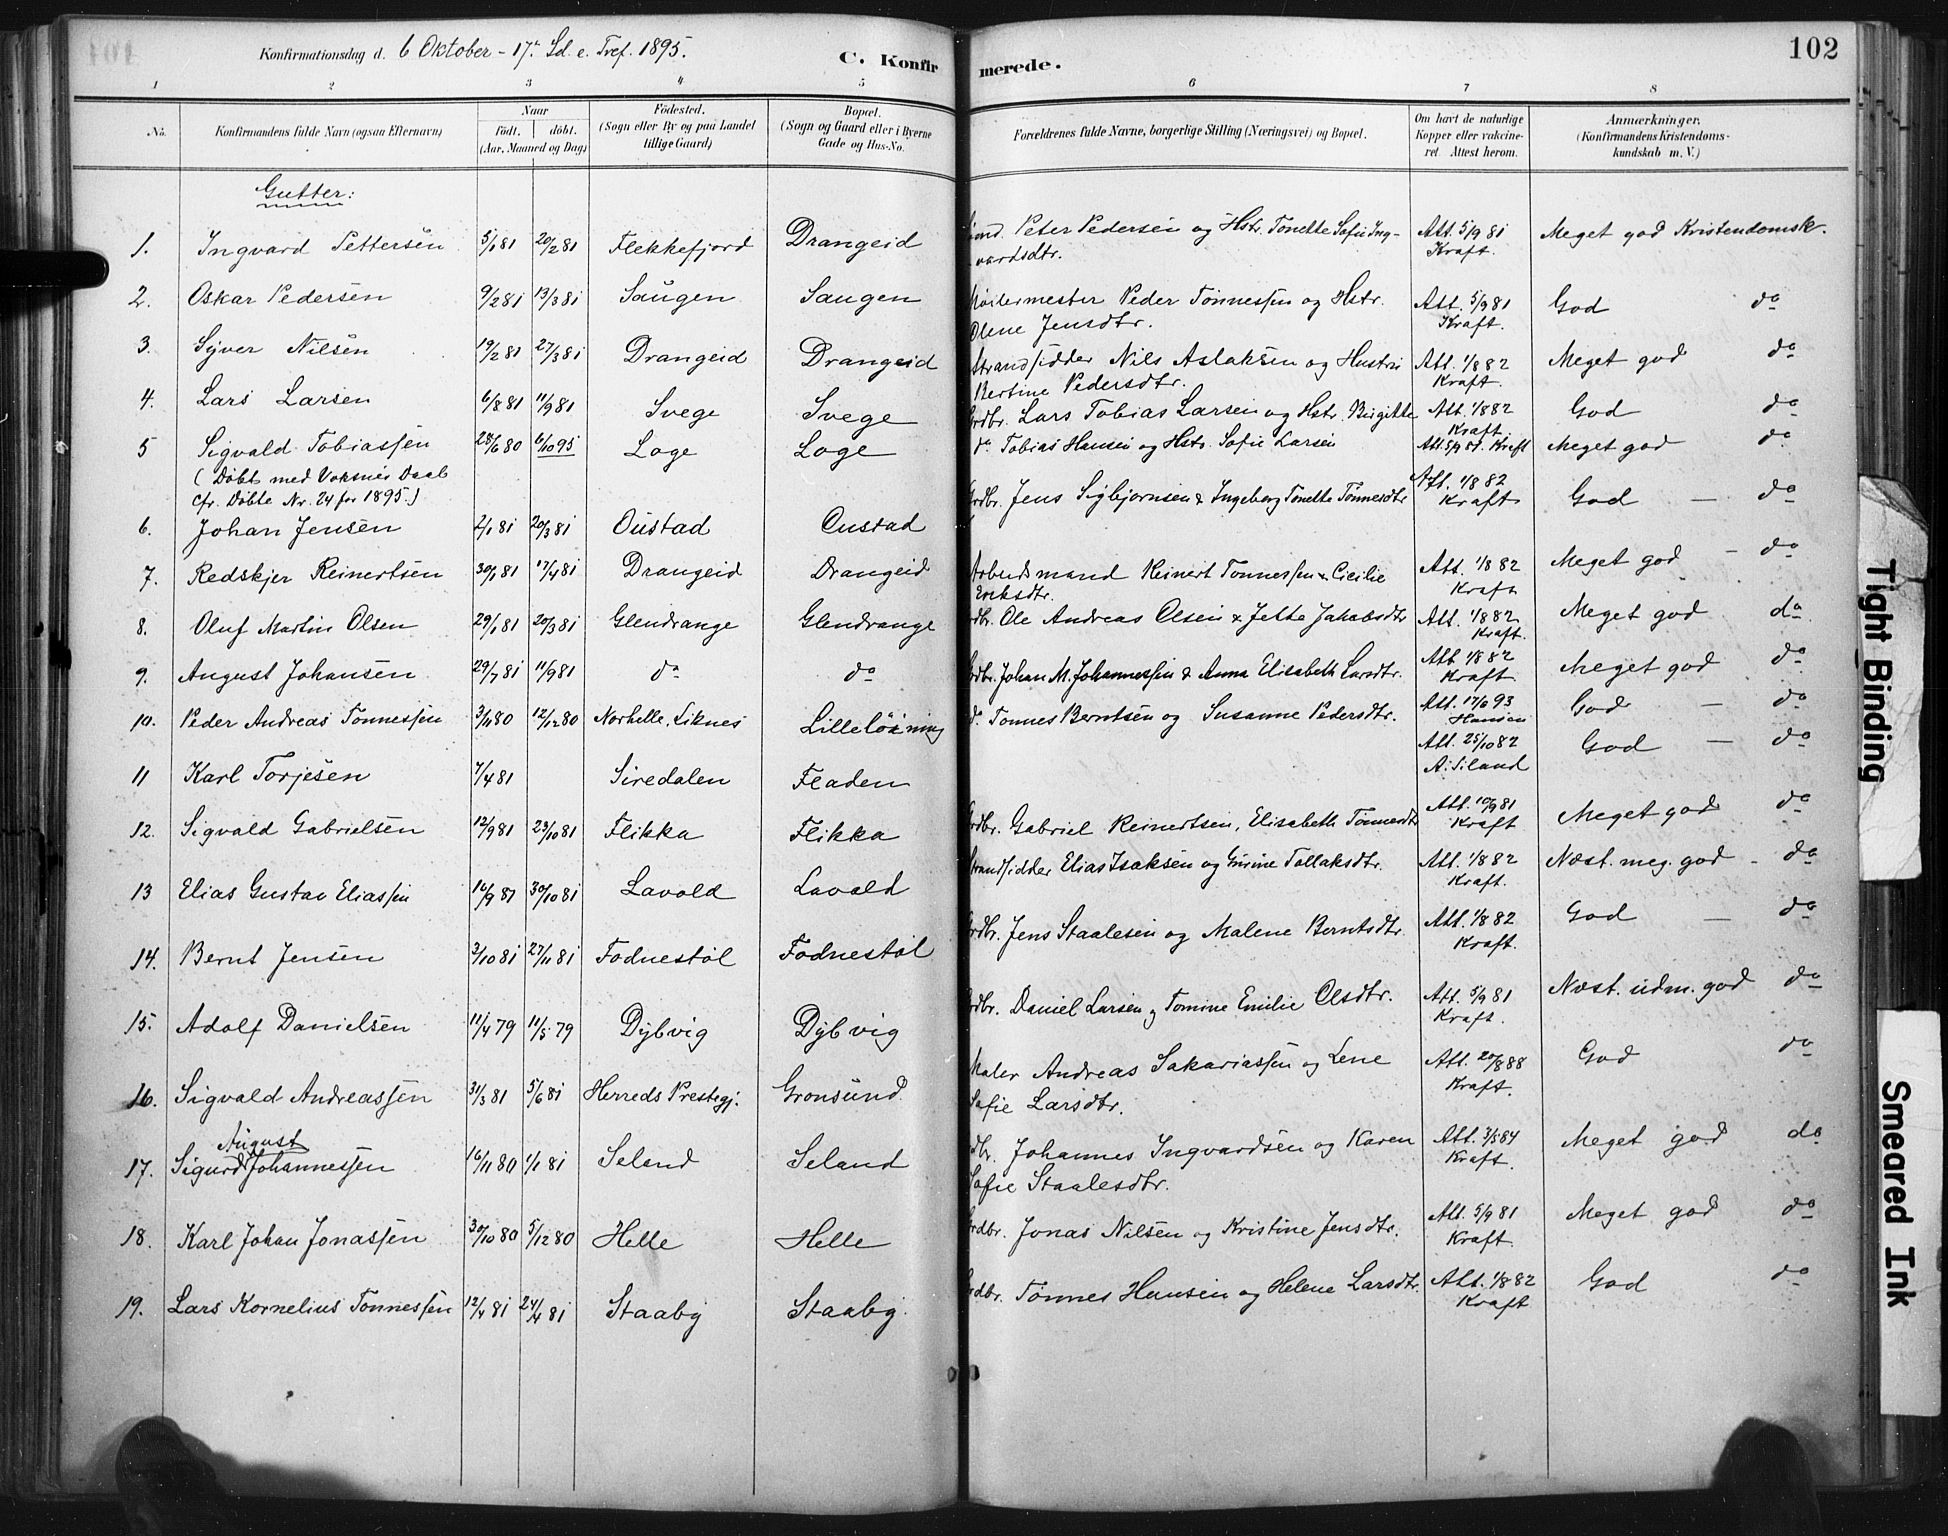 Konfirmationsdag d. 6 Oktober - 17de Sd. e. Tref. 1895.
C. Konfirmerede.
102
1 2 3 4 5 6 7 8
No. Konfirmandens fulde Navn (ogsaa Efternavn) Naar födt. döbt. (Aar, Maaned og Dag) Födested. (Sogn eller By og paa Landet tillige Gaard) Bopæl. (Sogn og Gaard eller i Byerne Gade og Hus-No. Forældrenes fulde Navne, borgerlige Stilling (Næringsvei) og Bopæl. Om havt de naturlige Kopper eller vakcineret. Attest herom. Anmærkninger. (Konfirmandens Kristendomskundskab m. V.)
Gutter:
1. Ingvard Pettersen 5/1 81 20/2 81 Flekkefjord Drangeid Peter Pedersen og Hstr. Tonette Sofie Ingvardsdtr. Att. 5/9 81 Kraft. Meget god Kristendomsk.
2. Oskar Pedersen 9/2 81 13/3 81 Saugen Saugen Peder Tønnessen og Hstr. Olene Jensdtr. Att. 5/9 81 Kraft. God do
3. Syver Nilsen 19/2 81 27/3 81 Drangeid Drangeid Strandsidder Nils Aslaksen og Hustru Bertine Pedersdtr. Att. 1/8 82 Kraft. Meget god do
4. Lars Larsen 6/8 81 11/9 81 Svege Svege Grdbr. Lars Tobias Larsen og Hstr. Birgitte Att. 1/8 82 Kraft. God do
5 Sigvald Tobiassen 28/6 80 6/10 95 Loge Loge do Tobias Hansen og Hstr. Sofie Larsen Att. 5/9 81. Kraft Meget god do
(Døbt med Voksnes Daab
cfr. Døbte Nr. 24 for 1895.)
6. Johan Jensen 2/1 81 20/3 81 Oustad Oustad Grdbr. Jens Sigbjørnsen & Ingeborg Tonette Tønnesdtr Att. 1/8 82 Kraft God — do
7. Redskjer Reinertsen 30/1 81 17/4 81 Drangeid Drangeid Arbeidsmand Reinert Tønnessen & Cicilie Eriksdtr. Att. 1/8 82 Kraft Meget god - do
8. Oluf Martin Olsen 29/1 81 20/3 81 Glendrange Glendrange Grdbr. Ole Andreas Olsen & Jette Jakobsdtr Att. 1/8 82 Kraft. Meget god do
9. August Johansen 29/7 81 11/9 81 do do Grdbr. Johan M. Johannessen & Anna Elisabeth Larsdtr. Att. 1/8 82 Kraft Meget god do
10. Peder Andreas Tønnessen 3/11 80 12/12 80 Norhelle, Liknes Lilleløining do Tønnes Berntsen og Susanne Pedersdtr. Att. 17/6 93 Hansen God — do
11 Karl Torjesen 7/4 81 Siredalen Fladen Att. 25/10 82 A. Siland God — do
12. Sigvald Gabrielsen 12/9 81 23/10 81 Flikka Flikka Grdbr. Gabriel Reinertsen, Elisabeth Tønnesdtr Att. 10/9 81 Kraft Meget god do
13 Elias Gustav Eliassen 16/9 81 30/10 81 Lavold Lavold Strandsidder Elias Isaksen og Gurine Tollaksdtr. Att. 1/8 82 Kraft. Næst. meg. god - do
14. Bernt Jensen 3/10 81 27/11 81 Fodnestøl Fodnestøl Grdbr. Jens Staalesen og Malene Berntsdtr. Att. 1/8 82 Kraft. God — do
15. Adolf Danielsen 11/4 79 11/5 79 Dybvig Dybvig Grdbr. Daniel Larsen og Tomine Emilie Olsdtr. Att. 5/9 81 Kraft. Næst. udm. god do
16. Sigvald Andreassen 31/3 81 5/6 81 Herreds Prestegj. Grønsund Maler Andreas Sakariassen og Lene Sofie Larsdtr. Att. 20/8 88 Kraft. God do
17. Sigurd August Johannessen 16/11 80 1/1 81 Seland Seland Grdbr. Johannes Ingvardsen og Karen Sofie Staalesdtr. Att. 3/5 84 Kraft. Meget god do
18. Karl Johan Jonassen 30/10 80 5/12 80 Helle Helle Grdbr. Jonas Nilsen og Kristine Jensdtr. Att. 5/9 81 Kraft. Meget god do
19. Lars Kornelius Tønnessen 12/4 81 24/4 81 Staaby Staaby. Grdbr. Tønnes Hansen og Helene Larsdtr. Att. 1/8 82 Kraft God do
Tight Binding
Smeared Ink